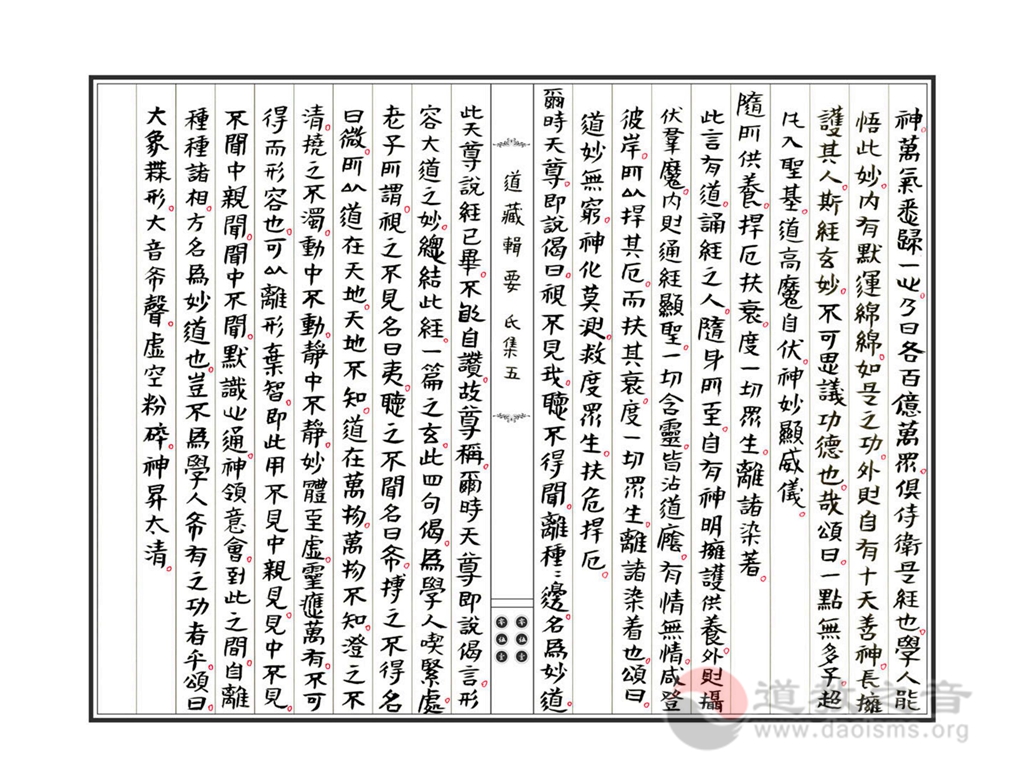 神萬氣悉歸一也乃曰各百億萬眾俱侍衛是経也學人能
悟此妙内有默運綿綿如是之功外則自有十天善神長擁
護其人斯経玄妙不可思議功德也哉頌曰一點無多子超
凡入聖基道高魔自伏神妙顯威儀
隨所供養捍厄扶衰度一切眾生離諸染著
此言有道誦経之人隨身所至自有神明擁護供養外則攝
伏羣魔内則通経顯聖一切含靈皆沾道廕有情無情咸登
彼岸所以捍其厄而扶其衰度一切眾生離諸染着也頌曰
道妙無窮神化莫測救度眾生扶危捍厄
爾時天尊即說偈曰視不見我聽不得聞離種種邊名為妙道
道藏輯要 氐集五
此天尊說経已畢不能自讚故尊稱爾時天尊即說偈言形
容大道之妙總結此経一篇之玄此四句偈為學人喫緊處
老子所謂視之不見名曰夷聽之不聞名曰希搏之不得名
曰微所以道在天地天地不知道在萬物萬物不知澄之不
清撓之不濁動中不動靜中不靜妙體至虛靈應萬有不可
得而形容也可以離形棄智即此用不見中親見見中不見
不聞中親聞聞中不聞默識心通神領意會到此之間自離
種種諸相方名為妙道也豈不為學人希有之功者乎頌曰
大象無形大音希聲虛空粉碎神昇太清
道教之音
www.daoisms.org